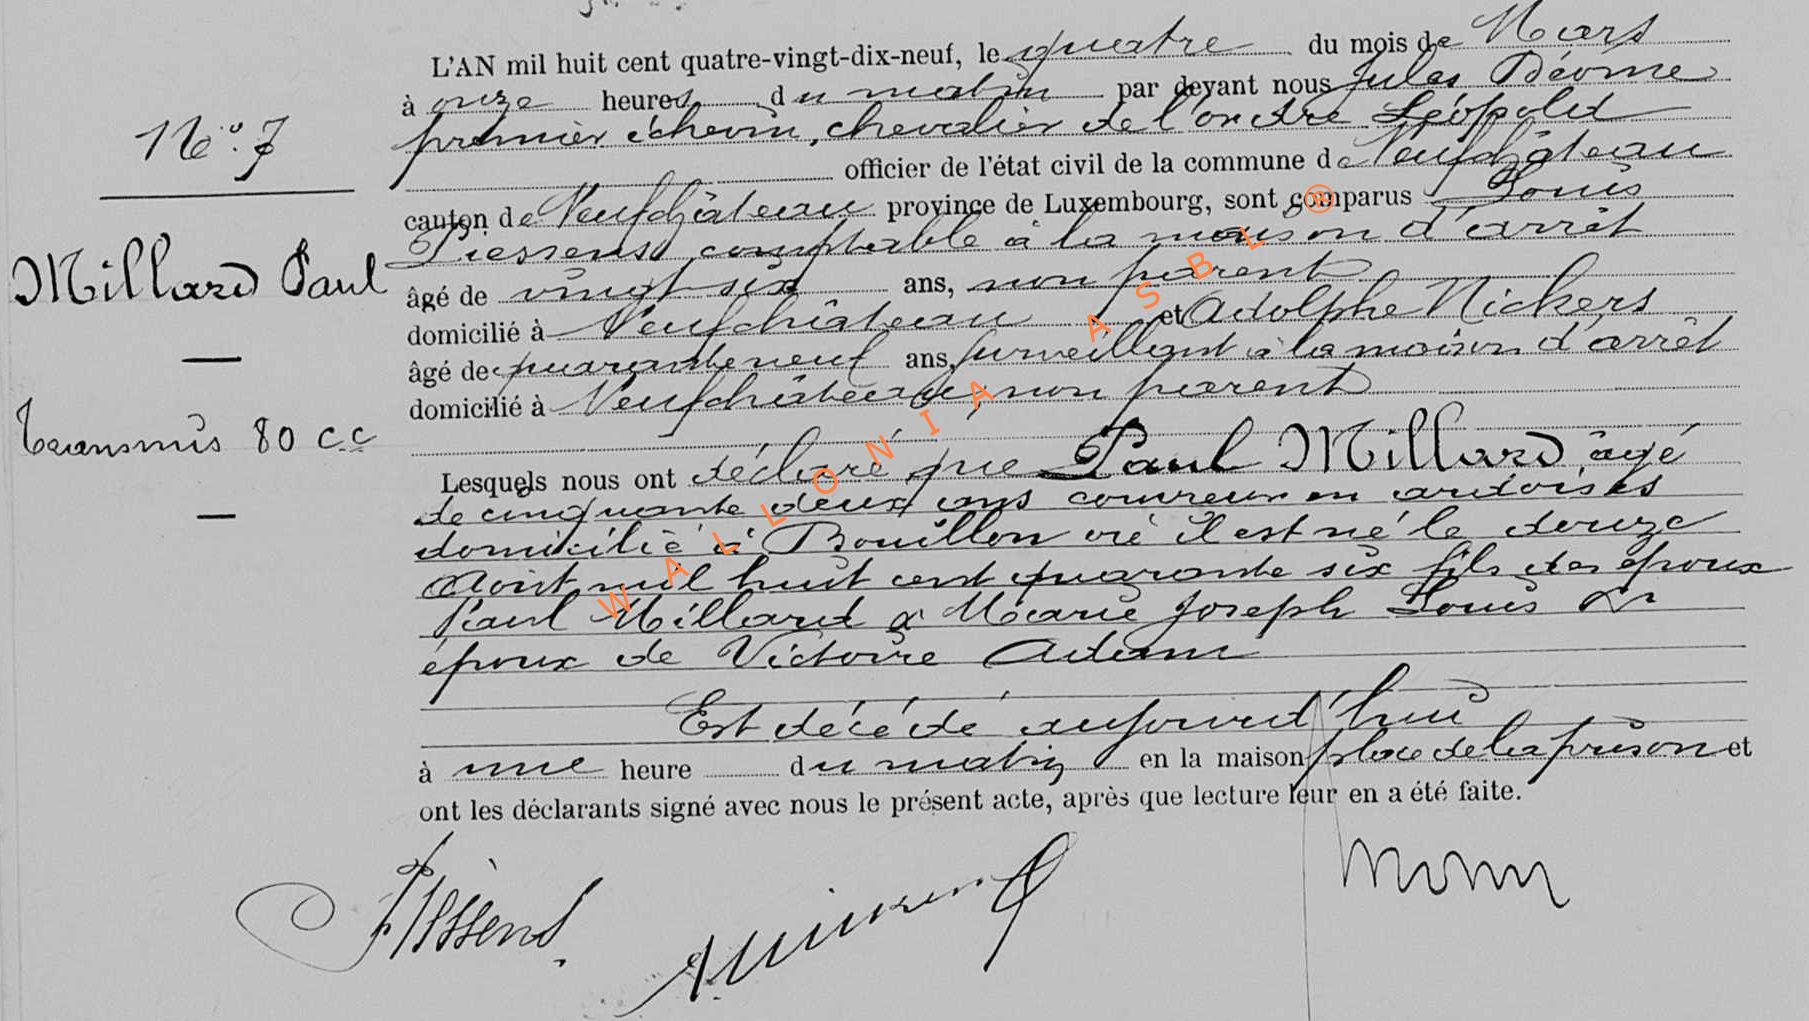 L'AN mil huit cent quatre-vingt-dix-neuf, le quatre du mois de Mars
à onze heures du matin par devant nous Jules Déome
premier échevin, chevalier de l'ordre Léopold
officier de l'état civil de la commune de Neufchâteau
canton de Neufchâteau province de Luxembourg, sont comparus Louis
Piessens comptable à la maison d'arrêt
âgé de vingt-six ans, non parent
domicilié à Neufchâteau et Adolphe Nickers
âgé de quarante neuf ans, surveillant à la maison d'arrêt
domicilié à Neufchâteau, non parent
Lesquels nous ont déclaré que Paul Millard âgé
de cinquante deux ans couvreur en ardoises
domicilié à Bouillon où il est né le douze
Août mil huit cent quarante six fils des époux
Paul Millard & Marie Joseph Louis &
époux de Victoire Adam
Est décédé aujourd'hui
à une heure du matin en la maison place de la prison et
ont les déclarants signé avec nous le présent acte, après que lecture leur en a été faite.
No. 7
Millard Paul
Transmis 80 c.c
Piessens
WALLONIA ASBL ®